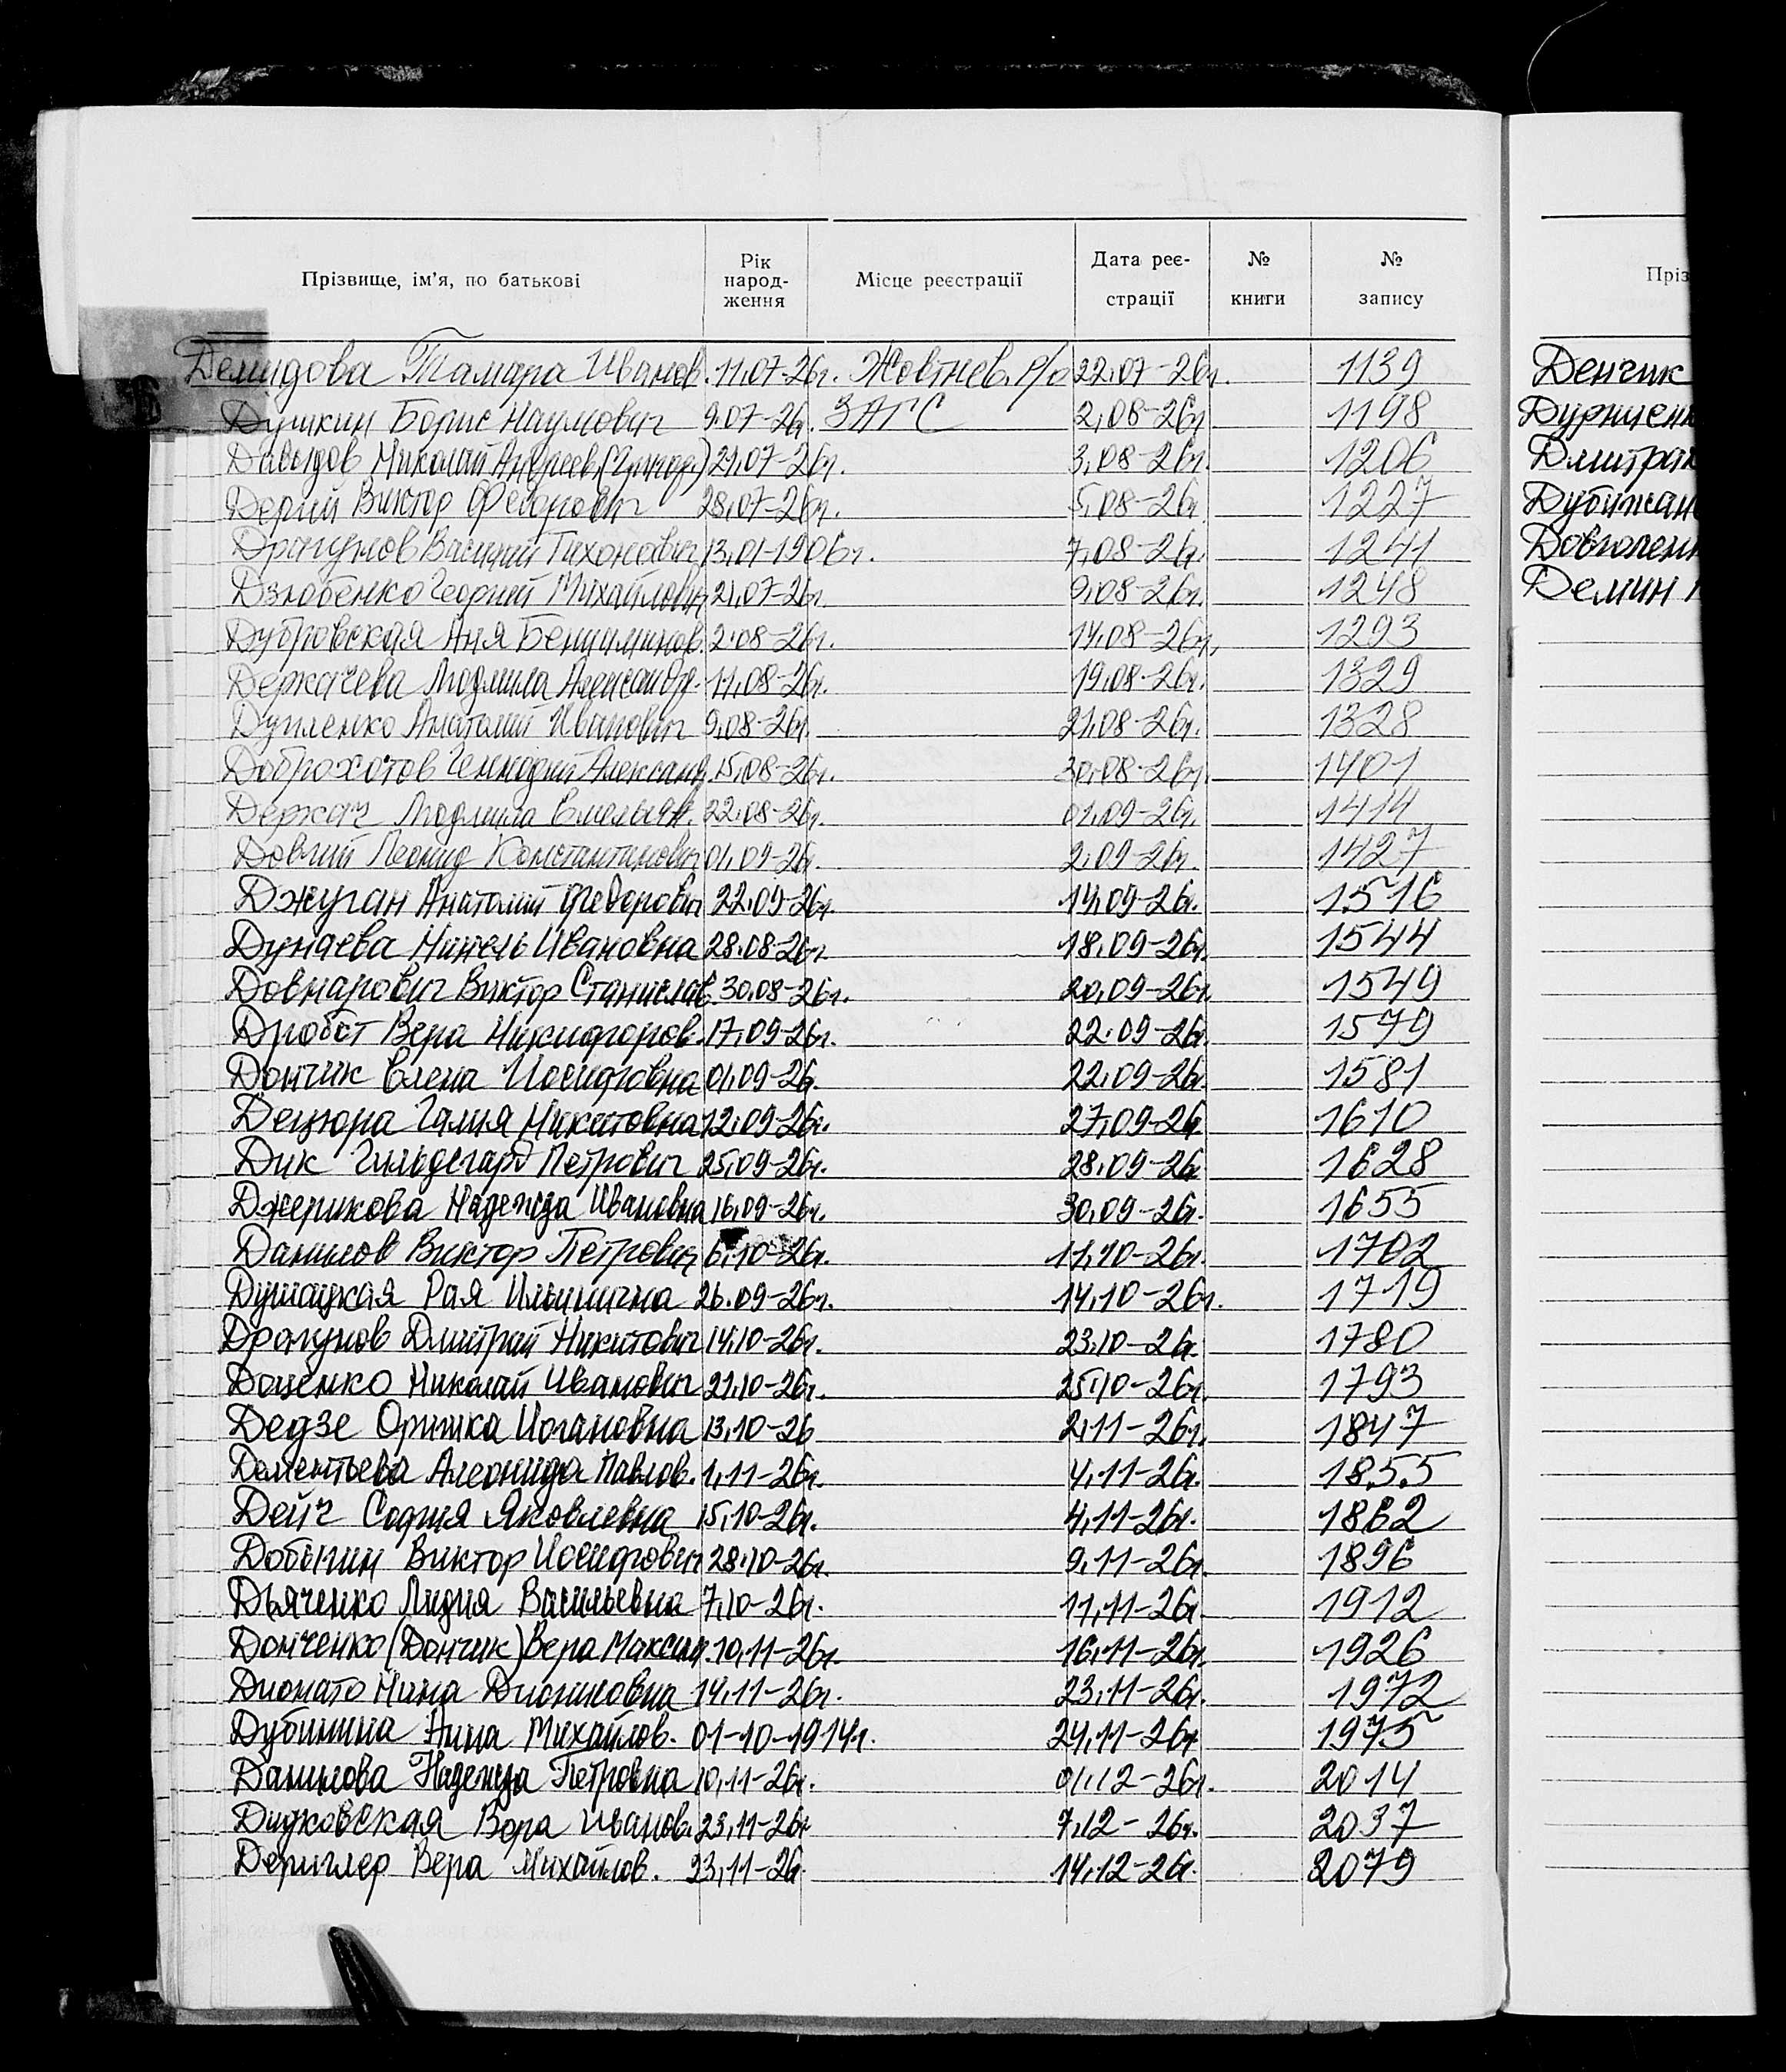 Прізвище, ім'я, по батькові Рік народ-ження Місце реєстрації Дата реє-страції № книги № запису
Демидова Тамара Иванов. 11.07-26г. Жовтнев. р/о 22.07-26г. 1139
Душкин Борис Наумович 9.07-26г. ЗАГС 2,08-26г 1198
Давыдов Николай Андреев. 21,07-26г. 3,08-26г. 1206
Дерий Виктор Федорович 28,07-26г. 5,08-26г 1227
Драгунов Василий Тихонович 13,01-1906г. 7,08-26г. 1241
Дзюбенко Георгий Михайлович 21,07-26г. 9,08-26г. 1248
Дубровская Аня Бенциаминов. 2.08-26г. 14.08-26г. 1293
Держачева Людмила Александр. 11,08-26г. 19,08-26г. 1329
Дупленко Анатолий Иванович 9,08-26г. 21,08-26г. 1328
Доброхотов Геннадий Александ. 15,08-26г. 30,08-26г. 1401
Держач Людмила Емельян. 22.08-26г. 01,09-26г. 1414
Довгий Леонид Константинович 01,09-26г. 2.09-26г. 1427
Джуган Анатолий Федорович 22.09-26г. 14,09-26г. 1516
Дунаева Нинель Ивановна 28.08-26г. 18.09-26г. 1544
Довнарович Виктор Станислав. 30.08-26г. 20,09-26г. 1549
Дробот Вера Никифоров. 17,09-26г. 22.09-26г. 1579
Дончик Елена Иосифовна 01,09-26г. 22,09-26г. 1581
Децюра Галия Никитовна 12.09-26г. 27,09-26г. 1610
Дик Гильдегард Петрович 25,09-26г. 28.09-26г. 1628
Джерикова Надежда Ивановна 16,09-26г. 30,09-26г. 1655
Данилов Виктор Петрович 6,10-26г. 11,10-26г. 1702
Рая Ильинична 26.09-26г. 14,10-26г. 1719
Драгунов Дмитрий Никитович 14,10-26г. 23,10-26г. 1780
Доценко Николай Иванович 21,10-26г. 25,10-26г. 1793
Дедзе Иогановна 13,10-26 2,11-26г. 1847
Дементьева Павлов. 1,11-26г. 4,11-26г. 1855
Дейч София Яковлевна 15,10-26г. 4,11-26г. 1862
Виктор Иосифович 28.10-26г. 9,11-26г. 1896
Дьяченко Лидия Васильевна 7,10-26г. 11,11-26г. 1912
Донченко (Дончик) Вера Максим. 10,11-26г. 16,11-26г. 1926
Дионато Нина Диониковна 14.11-26г. 23,11-26г. 1972
Дубинина Анна Михайлов. 01-10-1914г. 24,11-26г. 1975
Данилова Надежда Петровна 10,11-26г. 01,12-26г. 2014
Дидковская Вера Иванов. 23,11-26г. 7,12-26г. 2037
Дериглер Вера Михайлов. 23,11-26г. 14,12-26г. 2079
Пріз
Денчик
Дмитра
Дубижан
Довгопен
Демин